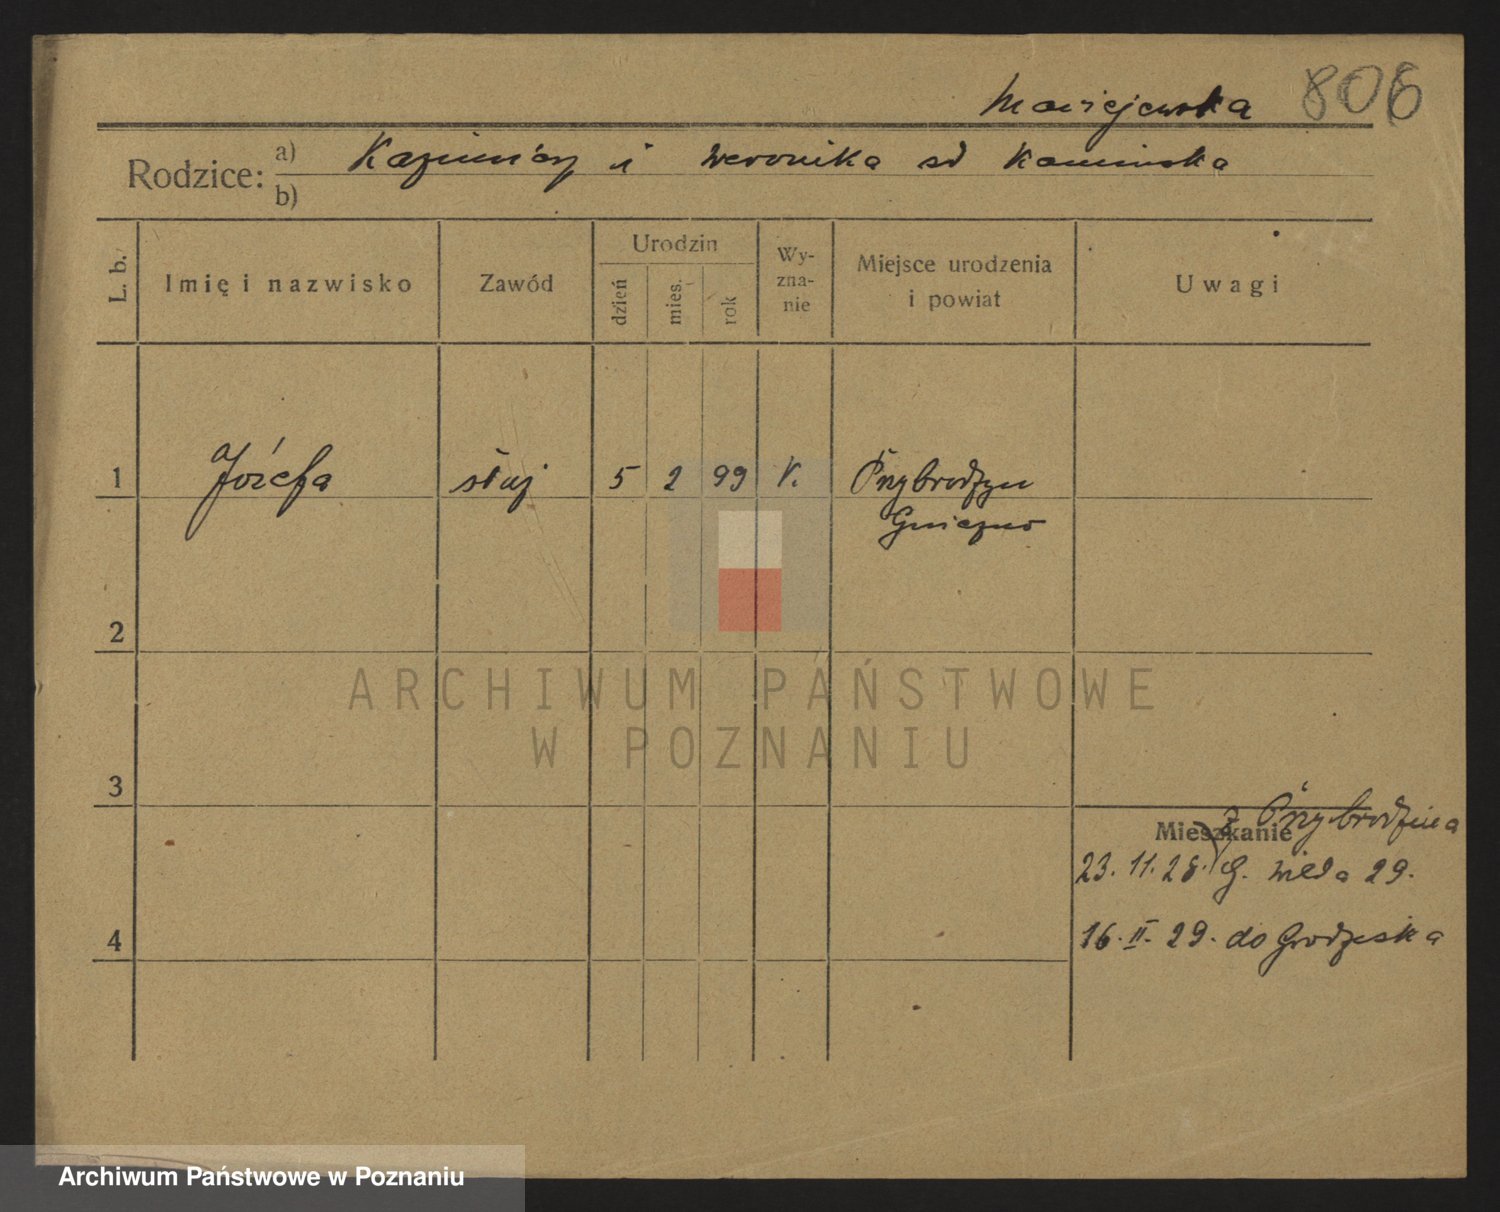 Maciejewska 806
Rodzice: a) Kazimierz i Weronika sd Kamińska
b)
L. b. Imię i nazwisko Zawód Urodzin Wyznanie Miejsce urodzenia i powiat Uwagi
dzień mies. rok
1 Józefa służ 5 2 99 k. Przybrodzyn
Gniezno
2
ARCHIWUM PAŃSTWOWE
W POZNANIU
3
z Przybrodzina
Mieszkanie
23.11.28. G. Wilda 29.
4 16.II.29. do Grodziska
Archiwum Państwowe w Poznaniu